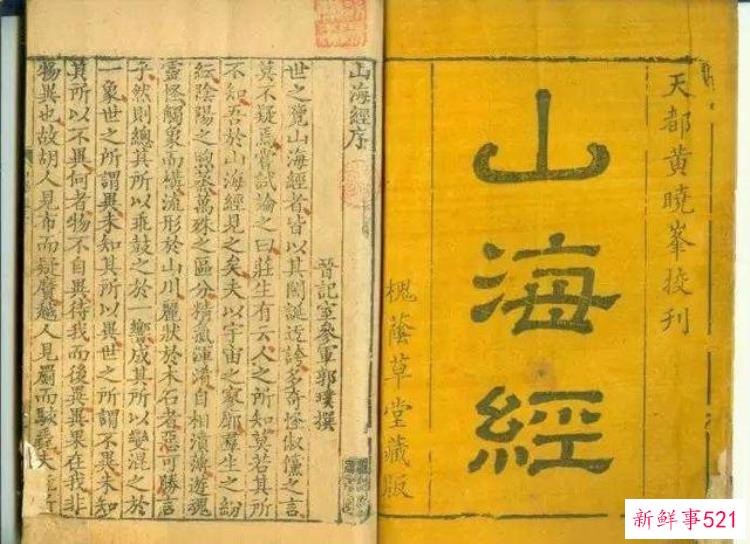 天都黄曉峯挍刊
山海經
槐蔭草堂藏版
山海經序
晉記室參軍郭璞撰
世之覽山海經者皆以其閎誕迂誇多奇怪俶儻之言
莫不疑焉嘗試論之曰莊生有云人之所知莫若其所
不知吾於山海經見之矣夫以宇宙之寥廓羣生之紛
紜陰陽之煦蒸萬殊之區分精氣渾淆自相濆薄遊魂
靈怪觸象而構流形於山川麗狀於木石者惡可勝言
乎然則總其所以乖鼓之於一響成其所以變混之於
一象世之所謂異未知其所以異世之所謂不異未知
其所以不異何者物不自異待我而後異異果在我非
物異也故胡人見布而疑黂越人見罽而駭毳夫
新鲜事521